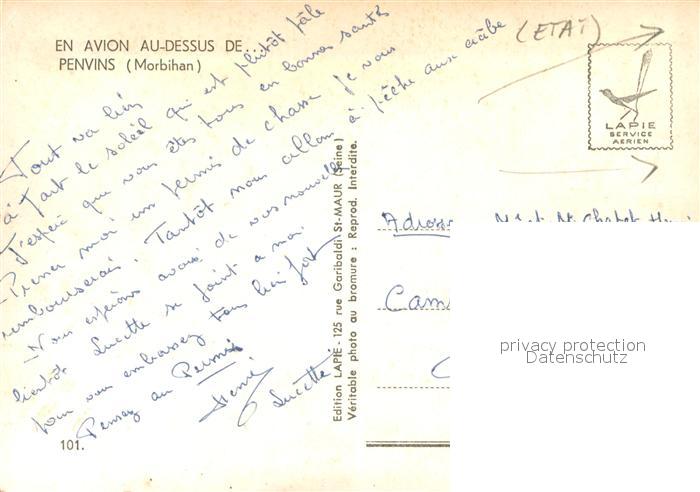 EN AVION AU-DESSUS DE...
PENVINS (Morbihan)
(ETAT)
LAPIE
SERVICE
AERIEN
Tout va bien
à part le soleil qui est plutôt pâle
J'espère que vous êtes tous en bonne santé
Prenez moi un permis de chasse je vous
rembourserai. Tantôt nous allons à pêche aux crabe
- Nous espérons avoir de vos nouvelles
bientôt Lucette se joint a moi
pour vous embrassez tous bien fort
Pensez au Permis
Henri
Lucette
Edition LAPIE - 125 rue Garibaldi St-MAUR (Seine)
Véritable photo au bromure : Reprod. Interdite.
M. Chabot
privacy protection
Datenschutz
101.